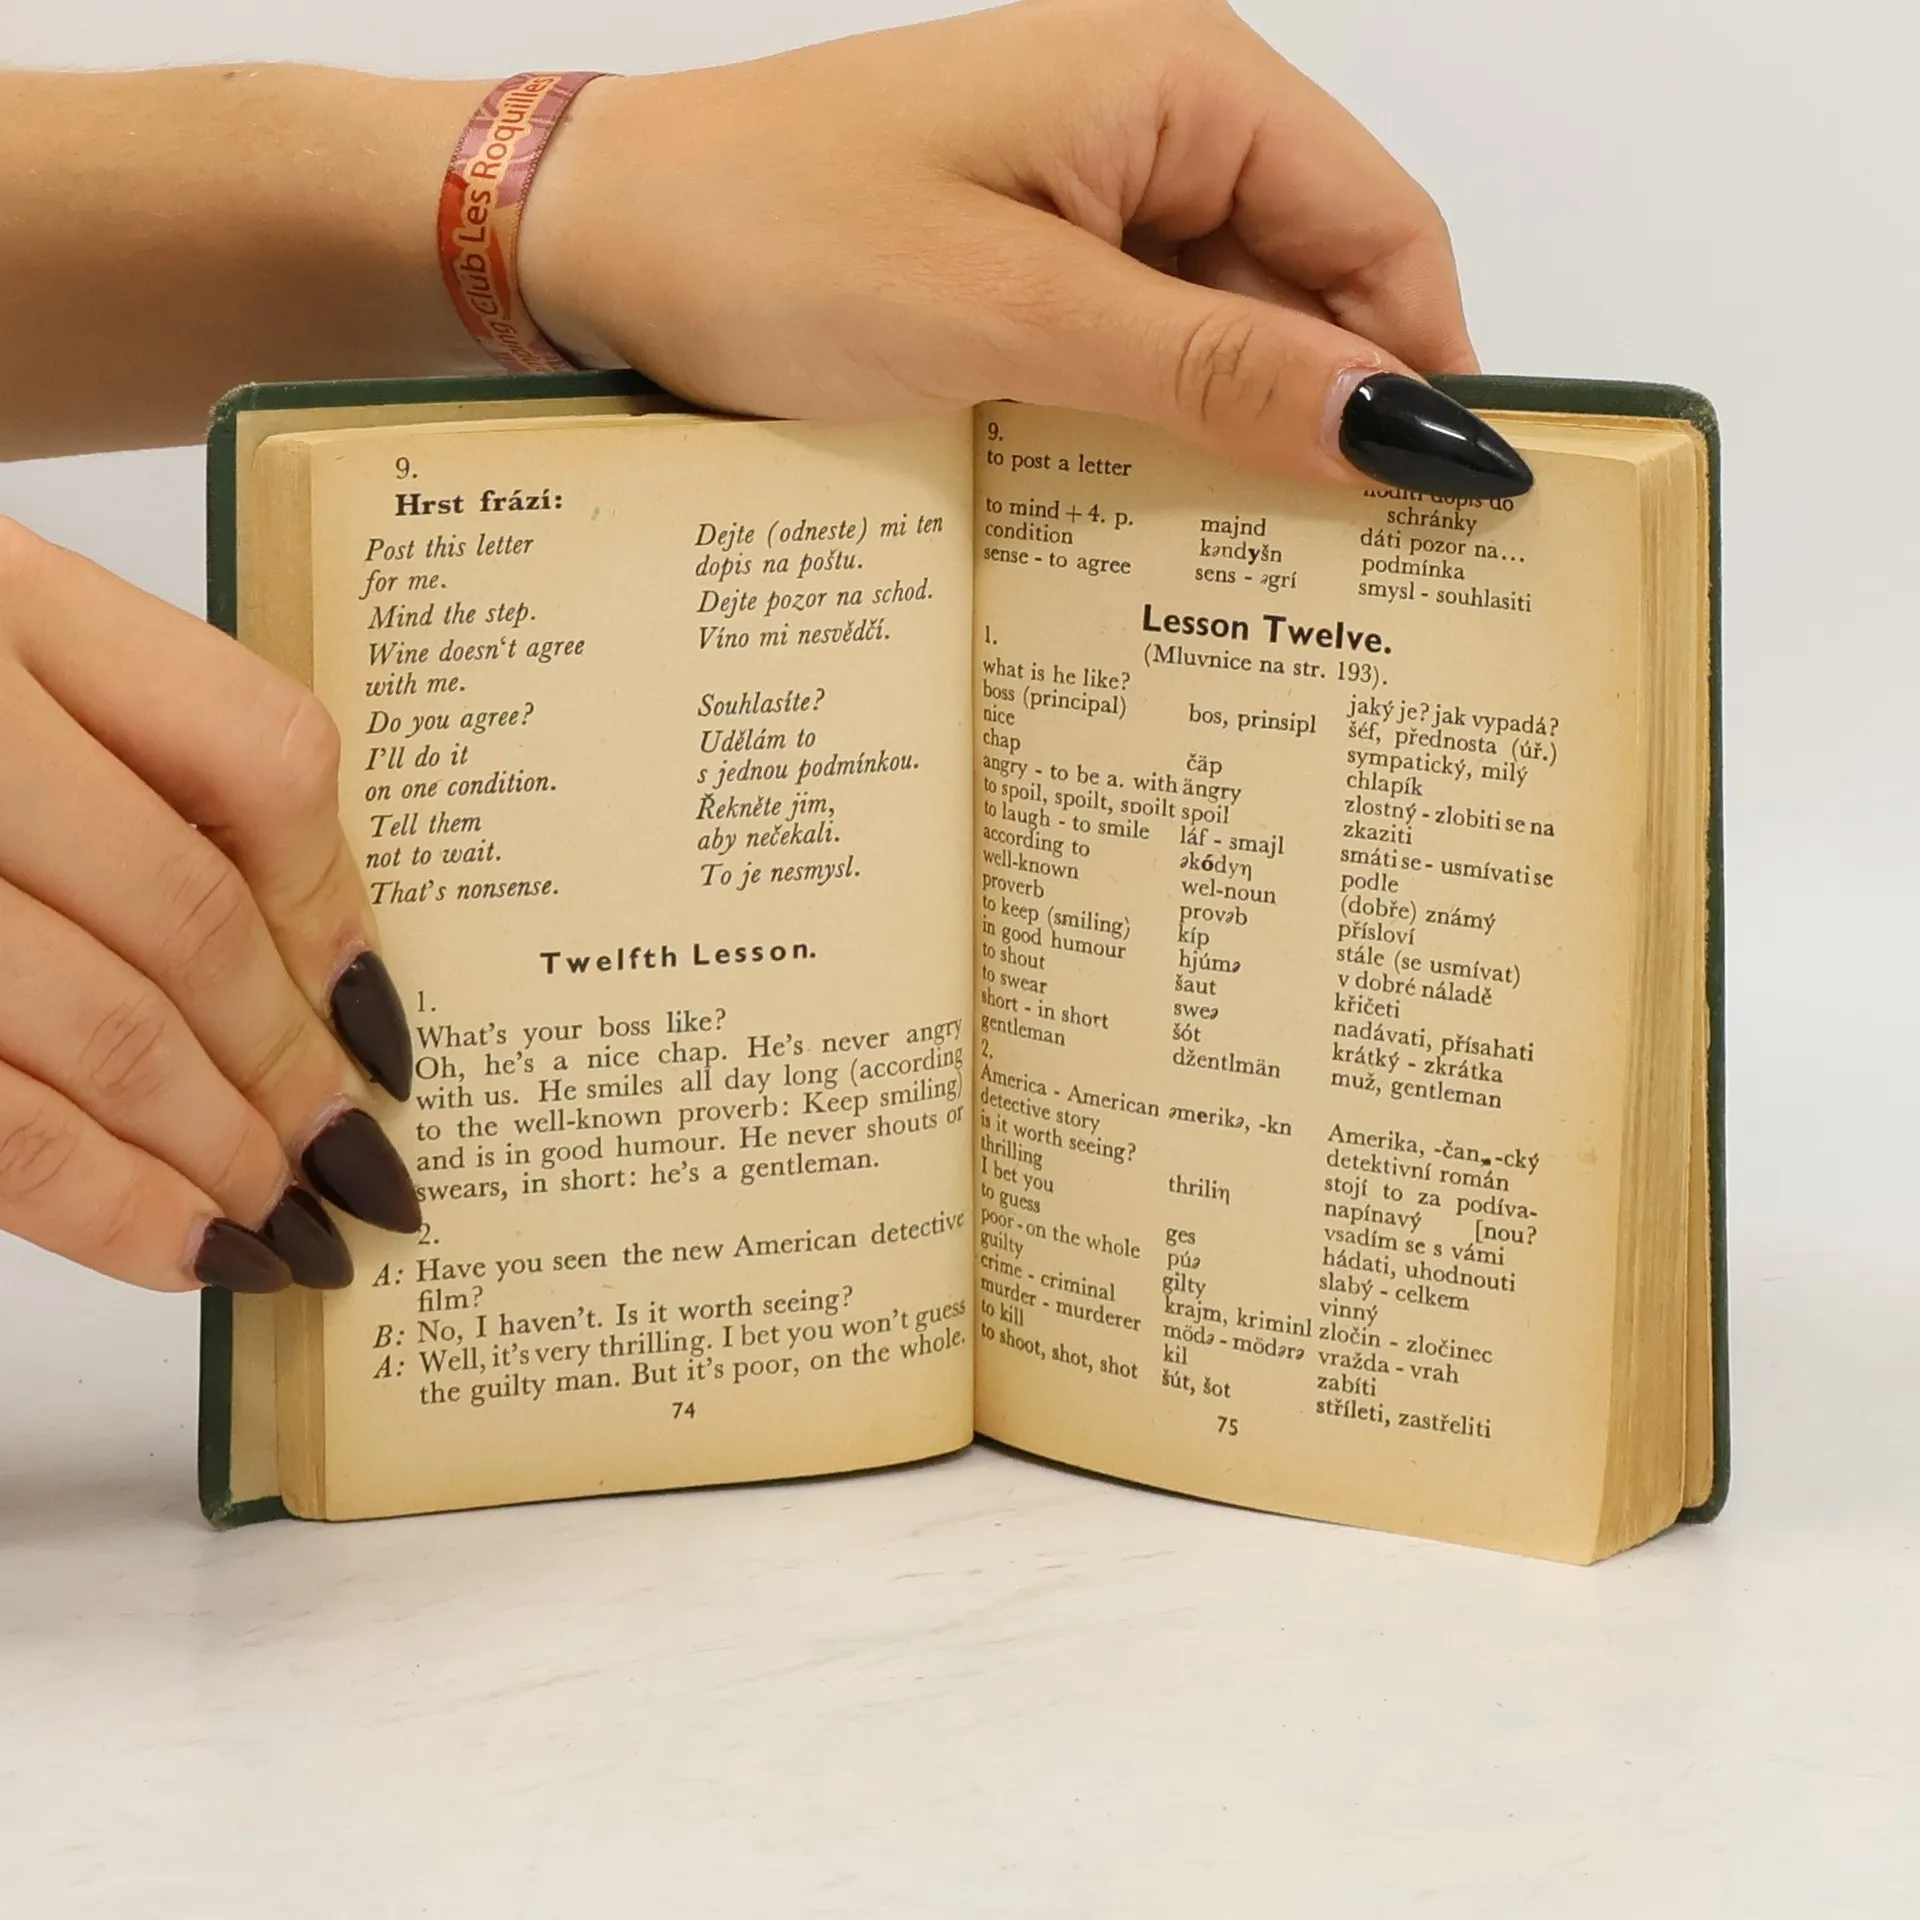 ng Club Les Roquilles
9.
Hrst frází:
Post this letter
for me.
Mind the step.
Wine doesn't agree
with me.
Do you agree?
I'll do it
on one condition.
Tell them
not to wait.
That's nonsense.
Dejte (odneste) mi ten
dopis na poštu.
Dejte pozor na schod.
Víno mi nesvědčí.
Souhlasíte?
Udělám to
s jednou podmínkou.
Řekněte jim,
aby nečekali.
To je nesmysl.
Twelfth Lesson.
1.
What's your boss like?
Oh, he's a nice chap. He's never angry
with us. He smiles all day long (according
to the well-known proverb: Keep smiling)
and is in good humour. He never shouts or
swears, in short: he's a gentleman.
2.
A: Have you seen the new American detective
film?
B: No, I haven't. Is it worth seeing?
A: Well, it's very thrilling. I bet you won't guess
the guilty man. But it's poor, on the whole.
74
9.
to post a letter
hoditi dopis do
schránky
to mind + 4. p. majnd dáti pozor na...
condition kəndyšn podmínka
sense - to agree sens - əgrí smysl - souhlasiti
Lesson Twelve.
(Mluvnice na str. 193).
1.
what is he like? jaký je? jak vypadá?
boss (principal) bos, prinsipl šéf, přednosta (úř.)
nice sympatický, milý
chap čäp chlapík
angry - to be a. with ängry zlostný - zlobiti se na
to spoil, spoilt, spoilt spoil zkaziti
to laugh - to smile láf - smajl smáti se - usmívati se
according to əkódyŋ podle
well-known wel-noun (dobře) známý
proverb provəb přísloví
to keep (smiling) kíp stále (se usmívat)
in good humour hjúmə v dobré náladě
to shout šaut křičeti
to swear sweə nadávati, přísahati
short - in short šót krátký - zkrátka
gentleman džentlmän muž, gentleman
2.
America - American əmerikə, -kn Amerika, -čan, -cký
detective story detektivní román
is it worth seeing? stojí to za podíva-
thrilling thriliŋ napínavý [nou?
I bet you vsadím se s vámi
to guess ges hádati, uhodnouti
poor - on the whole púə slabý - celkem
guilty gilty vinný
crime - criminal krajm, kriminl zločin - zločinec
murder - murderer mödə - mödərə vražda - vrah
to kill kil zabíti
to shoot, shot, shot šút, šot stříleti, zastřeliti
75